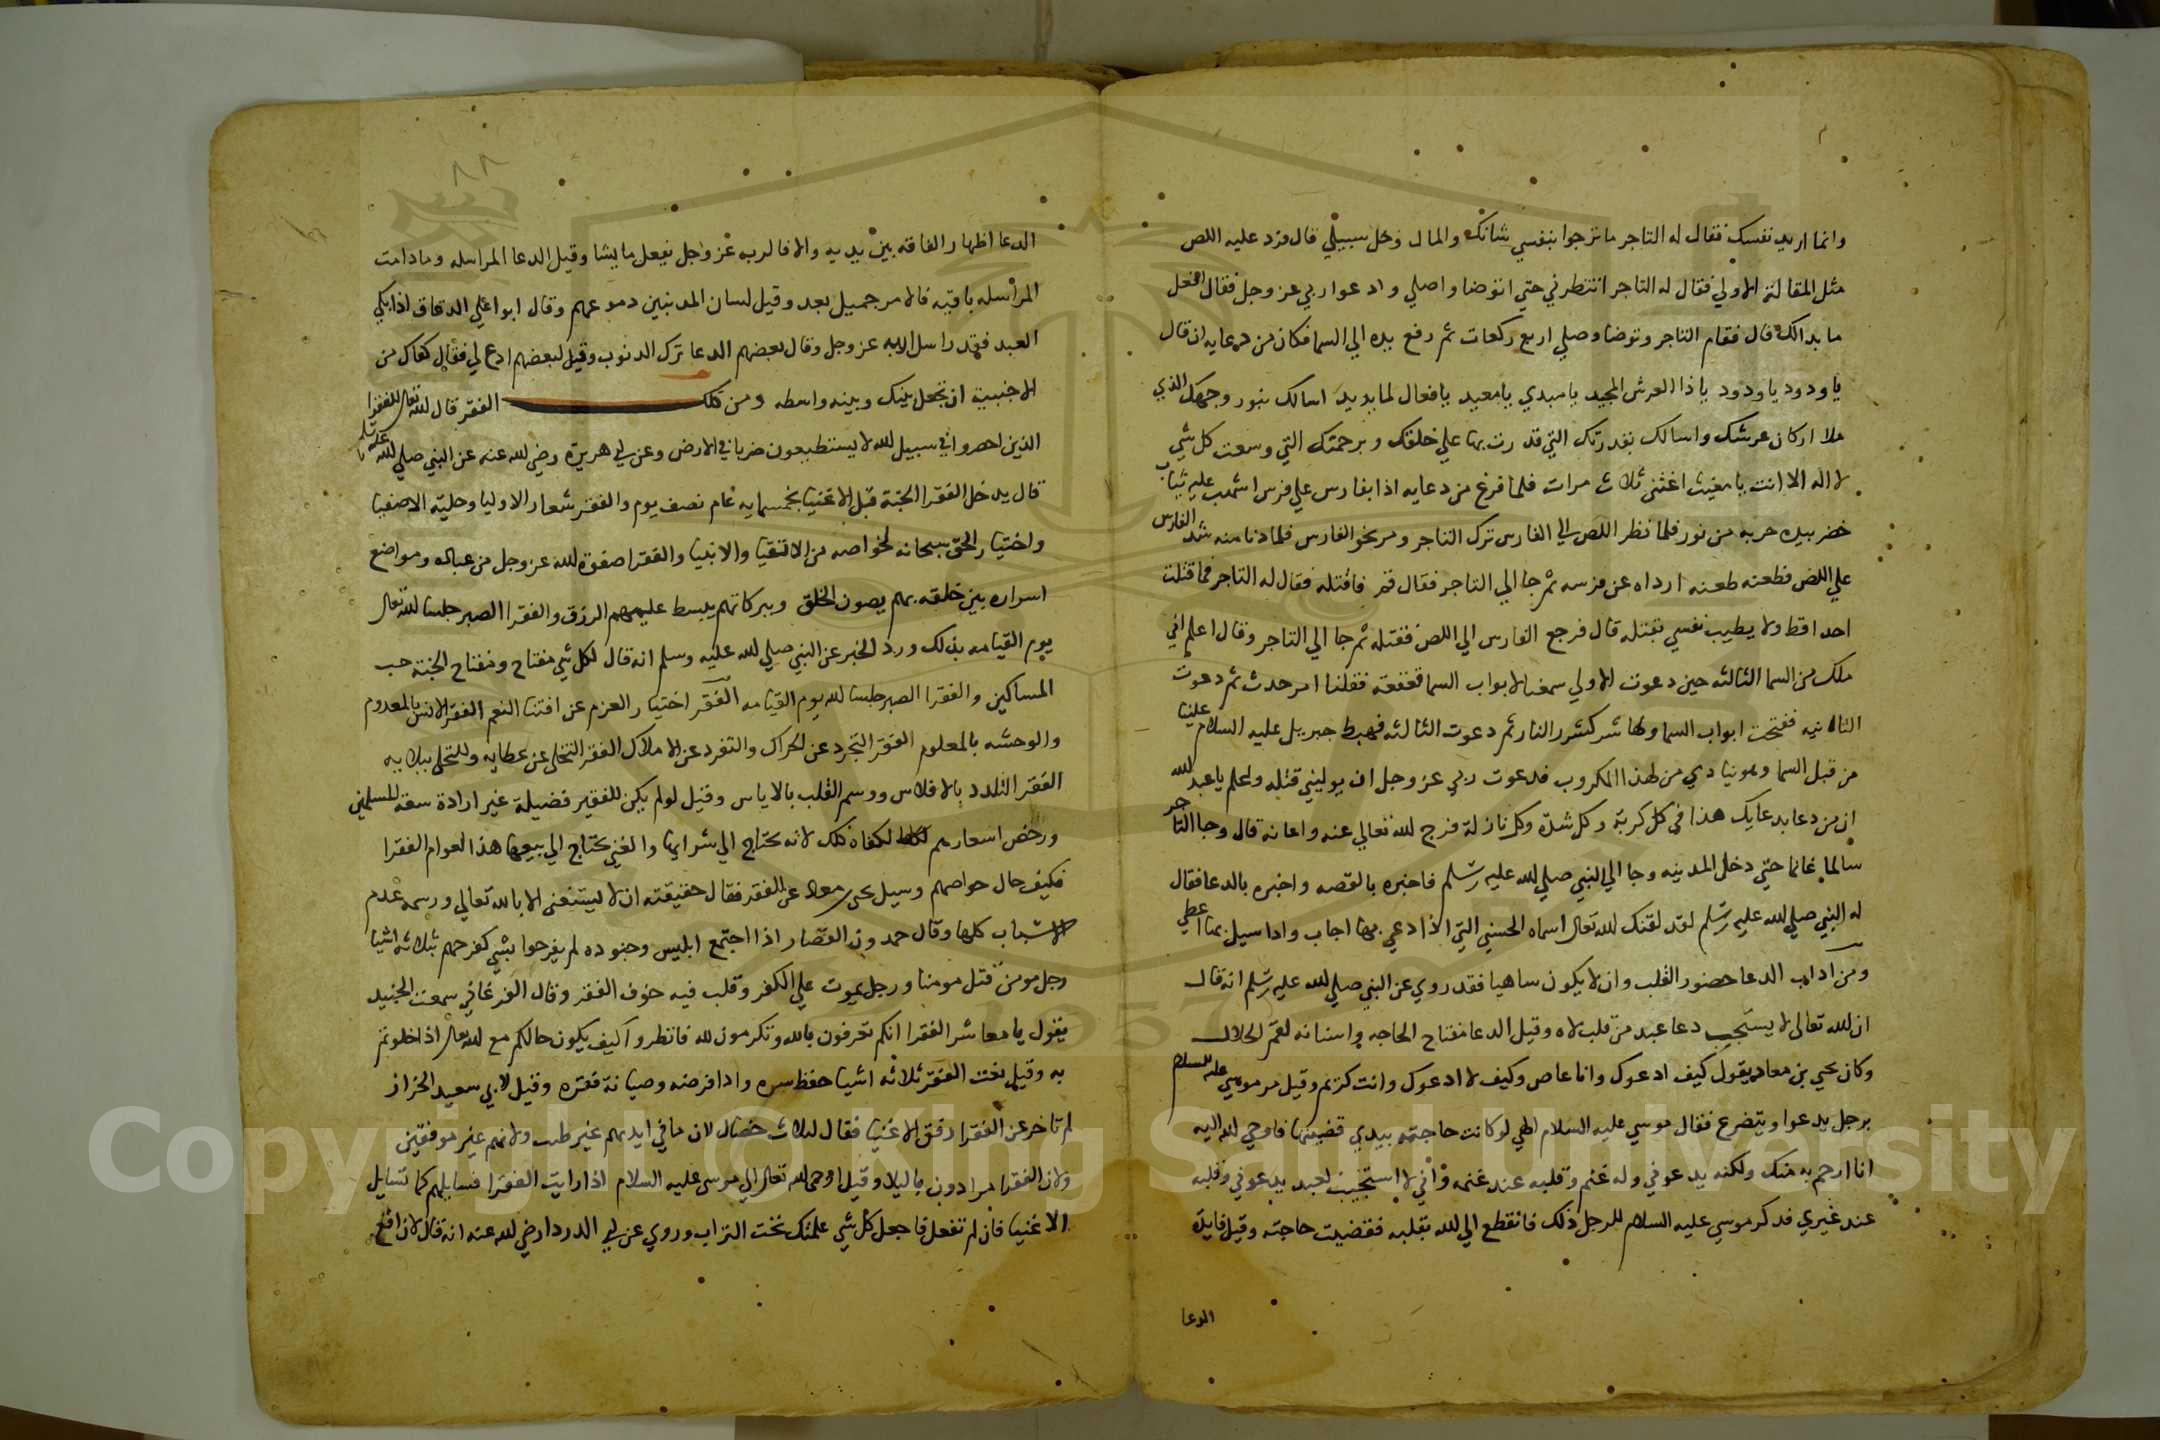 وانما اريد نفسك فقال له التاجر ما ترجوا بنفسي شانك والمال وخل سبيلي قال فرد عليه اللص
مثل المقالة الاولي فقال له التاجر انتظرني حتي اتوضا واصلي وادعوا ربي عز وجل فقال افعل
ما بدالك قال فقام التاجر وتوضا وصلي اربع ركعات ثم رفع يده الي السما فكان من دعايه ان قال
يا ودود يا ودود يا ذا العرش المجيد يا مبدي يا معيد يا فعال لما يريد اسالك بنور وجهك الذي
ملا اركان عرشك واسالك بقدرتك التي قدرت بها علي خلقك وبرحمتك التي وسعت كل شي
لا اله الا انت يا مغيث اغثني ثلاث مرات فلما فرغ من دعايه اذا بفارس علي فرس اشهب عليه ثياب
خضر بيده حربه من نور فلما نظر اللص الي الفارس ترك التاجر ومر نحو الفارس فلما دنا منه شد الفارس
علي اللص فطعنه طعنه ارداه عن فرسه ثم جا الي التاجر فقال قم فاقتله فقال له التاجر فما قتلت
احدا قط ولا يطيب نفسي بقتله قال فرجع الفارس الي اللص فقتله ثم جا الي التاجر وقال اعلم اني
ملك من السما الثالثه حين دعوت الاولي سمعنا لابواب السما قعقعه فقلنا امر حدث ثم دعوت
الثانيه ففتحت ابواب السما ولها شرر كشرر النار ثم دعوت الثالثه فهبط جبريل عليه السلام علينا
من قبل السما وهو ينادي من لهذا المكروب فدعوت ربي عز وجل ان يوليني قتله واعلم يا عبد الله
ان من دعا بدعايك هذا في كل كربة وكل شدة وكل نازلة فرج الله تعالي عنه واعانه قال وجا التاجر
سالما غانما حتي دخل المدينه وجا الي النبي صلي الله عليه وسلم فاخبره بالقصه واخبره بالدعا فقال
له النبي صلي الله عليه وسلم لقد لقنك الله تعالى اسماه الحسني التي اذا دعي بها اجاب واذا سيل بها اعطي
ومن آداب الدعا حضور القلب وان لا يكون ساهيا فقد روي عن النبي صلي الله عليه وسلم انه قال
ان الله تعالى لا يستجيب دعا عبد من قلب لاه وقيل الدعا مفتاح الحاجه واسنانه لقم الحلال
وكان يحي بن معاد يقول كيف ادعوك وانا عاص وكيف لا ادعوك وانت كريم وقيل مر موسي عليه السلام
برجل يدعوا ويتضرع فقال موسي عليه السلام الهي لو كانت حاجته بيدي قضيتها فاوحي الله اليه
انا ارحم به منك ولكنه يدعوني وله غنم وقلبه عند غنمه واني لا استجيب لعبد يدعوني وقلبه
عند غيري فذكر موسي عليه السلام للرجل ذلك فانقطع الي الله بقلبه فقضيت حاجته وقيل فايدة
الدعا
٨٨
الدعا اظهار الفاقه بين يديه والا فالرب عز وجل يفعل ما يشا وقيل الدعا المراسله وما دامت
المراسله باقيه فالامر جميل بعد وقيل لسان المدنبين دموعهم وقال ابوا علي الدقاق اذا بكي
العبد فقد راسل الله عز وجل وقال بعضهم الدعا ترك الدنوب وقيل لبعضهم ادع لي فقال كفاك من
الاجنبية ان تجعل بينك وبينه واسطه ومن ذلك الفقر قال الله تعالى للفقرا
الذين احصروا في سبيل الله لا يستطيعون ضربا في الارض وعن ابي هريرة رضي الله عنه عن النبي صلي الله عليه وسلم
قال يدخل الفقرا الجنة قبل الاغنيا بخمسمايه عام نصف يوم والفقر شعار الاوليا وحلية الاصفيا
واختيار الحق سبحانه لخواصه من الاتقيا والانبيا والفقرا صفوة الله عز وجل من عباده ومواضع
اسراره بين خلقه بهم يصون الخلق وببركاتهم يبسط عليهم الرزق والفقرا الصبر جلسا الله تعالى
يوم القيامه بذلك ورد الخبر عن النبي صلي الله عليه وسلم انه قال لكل شي مفتاح ومفتاح الجنة حب
المساكين والفقرا الصبر جلسا الله يوم القيامه الفقر اختيار العزم عن افتنا النعم الفقر الانس بالمعدوم
والوحشه بالمعلوم الفقر التجرد عن الحراك والتفرد عن الاملاك الفقر التخلي عن عطايه والتحلي ببلايه
الفقر التلدد بالافلاس ووسم القلب بالاياس وقيل لو لم يكن للفقير فضيلة غير ارادة سعة المسلمين
ورخص اسعارهم لكفاه ذلك لانه يحتاج الي شرايها والغني يحتاج الي بيعها هذا لعوام الفقرا
فكيف حال خواصهم وسيل يحي معاد عن الفقر فقال حقيقته ان لا يستغنى الا بالله تعالي ورسمه عدم
الاسباب كلها وقال حمدون القصار اذا اجتمع ابليس وجنوده لم يفرحوا بشي كفرحهم بثلاثه اشيا
رجل مومن قتل مومنا ورجل يموت علي الكفر وقلب فيه خوف الفقر وقال الفرغاني سمعت الجنيد
يقول يا معاشر الفقرا انكم تعرفون بالله وتكرمون لله فانظروا كيف يكون حالكم مع الله تعالى اذا خلوتم
به وقيل نعت الفقر ثلاثه اشيا حفظ سره وادا فرضه وصيانة فقره وقيل لابي سعيد الخراز
لم تاخر عن الفقرا رفق الاغنيا فقال لثلاث خصال لان ما في ايديهم غير طيب ولانهم غير موفقين
ولان الفقرا مرادون بالبلا وقيل اوحى الله تعالى الي موسى عليه السلام اذا رايت الفقرا فسايلهم كما تسايل
الاغنيا فان لم تفعل فاجعل كل شي علمتك تحت التراب وروي عن ابي الدردا رضي الله عنه انه قال لان اقع
Copyright © King Saud University
1957